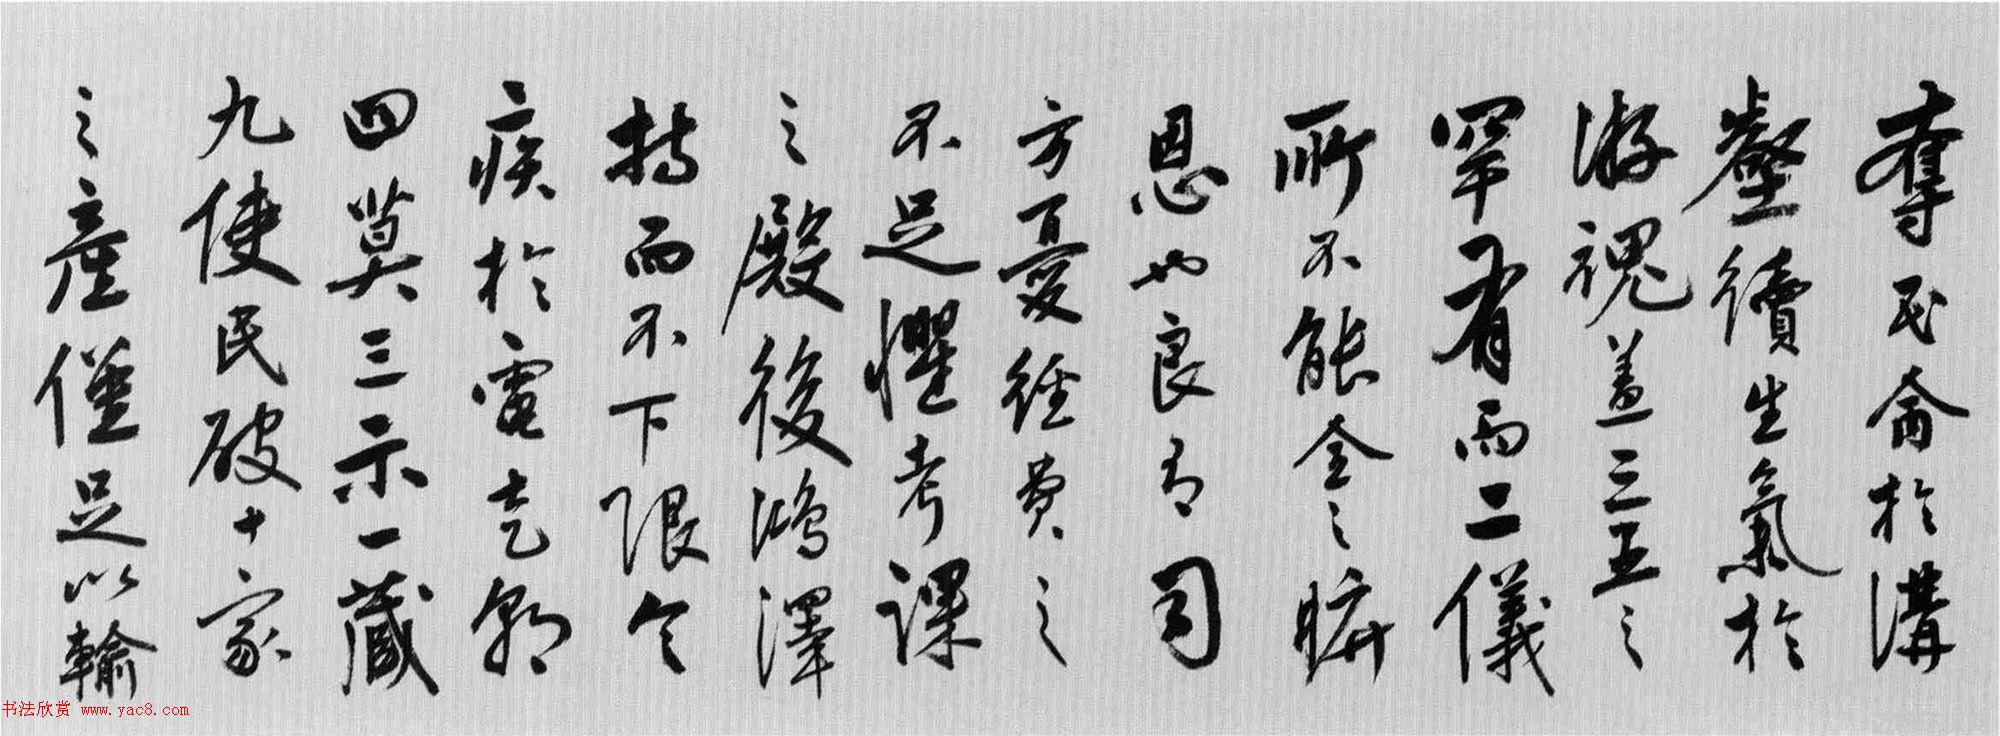 奪民命於溝
壑續生氣於
游魂盖三五之
罕有而二儀
所不能全之
恩也良有司
方憂經費之
不足懼考課
之殿後鴻澤
持而不下限令
疾於電走朝
四莫三示一藏
九使民破十家
之產僅足以輸
书法欣赏 www.yac8.com